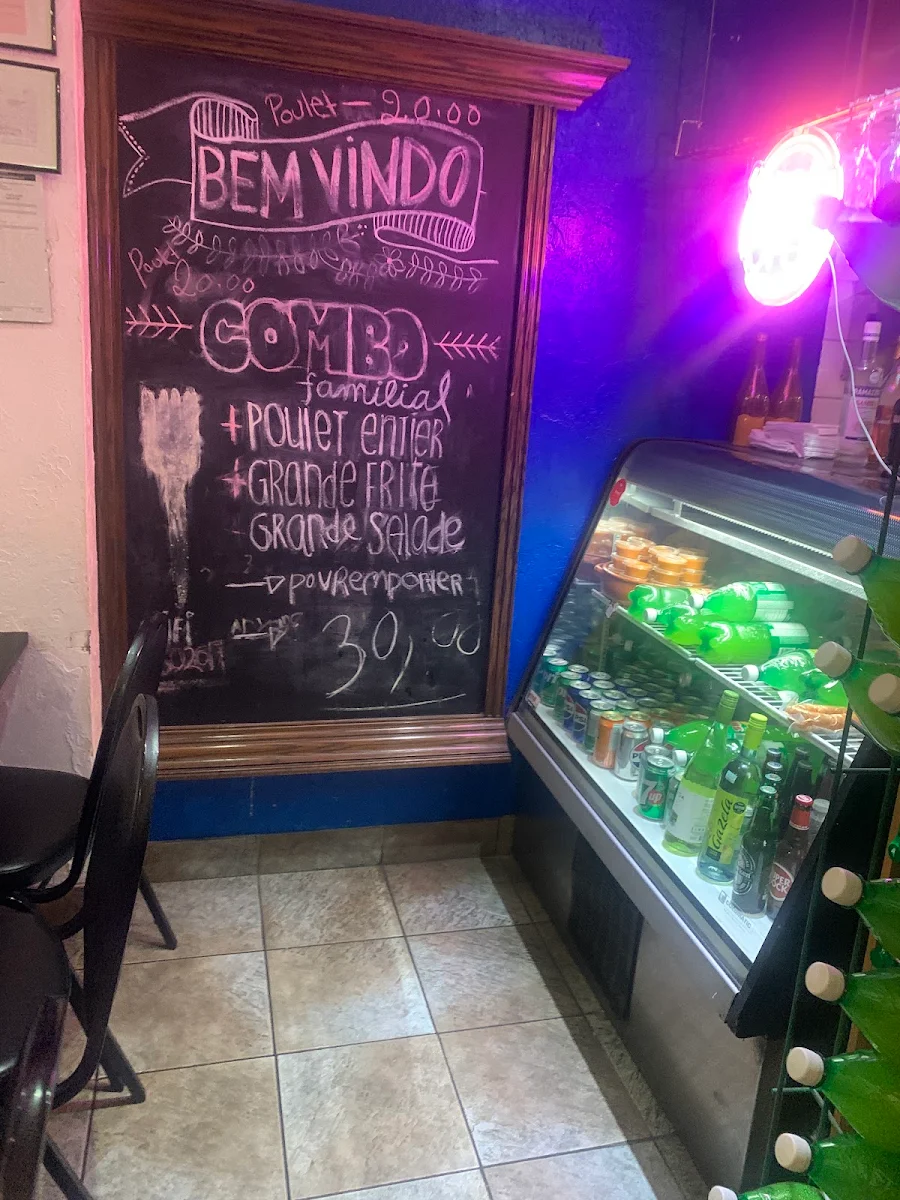 Poulet — 20.00
BEM VINDO
Poulet
20.00
COMBO
familial
+ POULET ENTIER
+ GRANDE FRITE
GRANDE SALADE
→ POUR EMPORTER
30,00
7up
Gazela
SUPER
BOCK